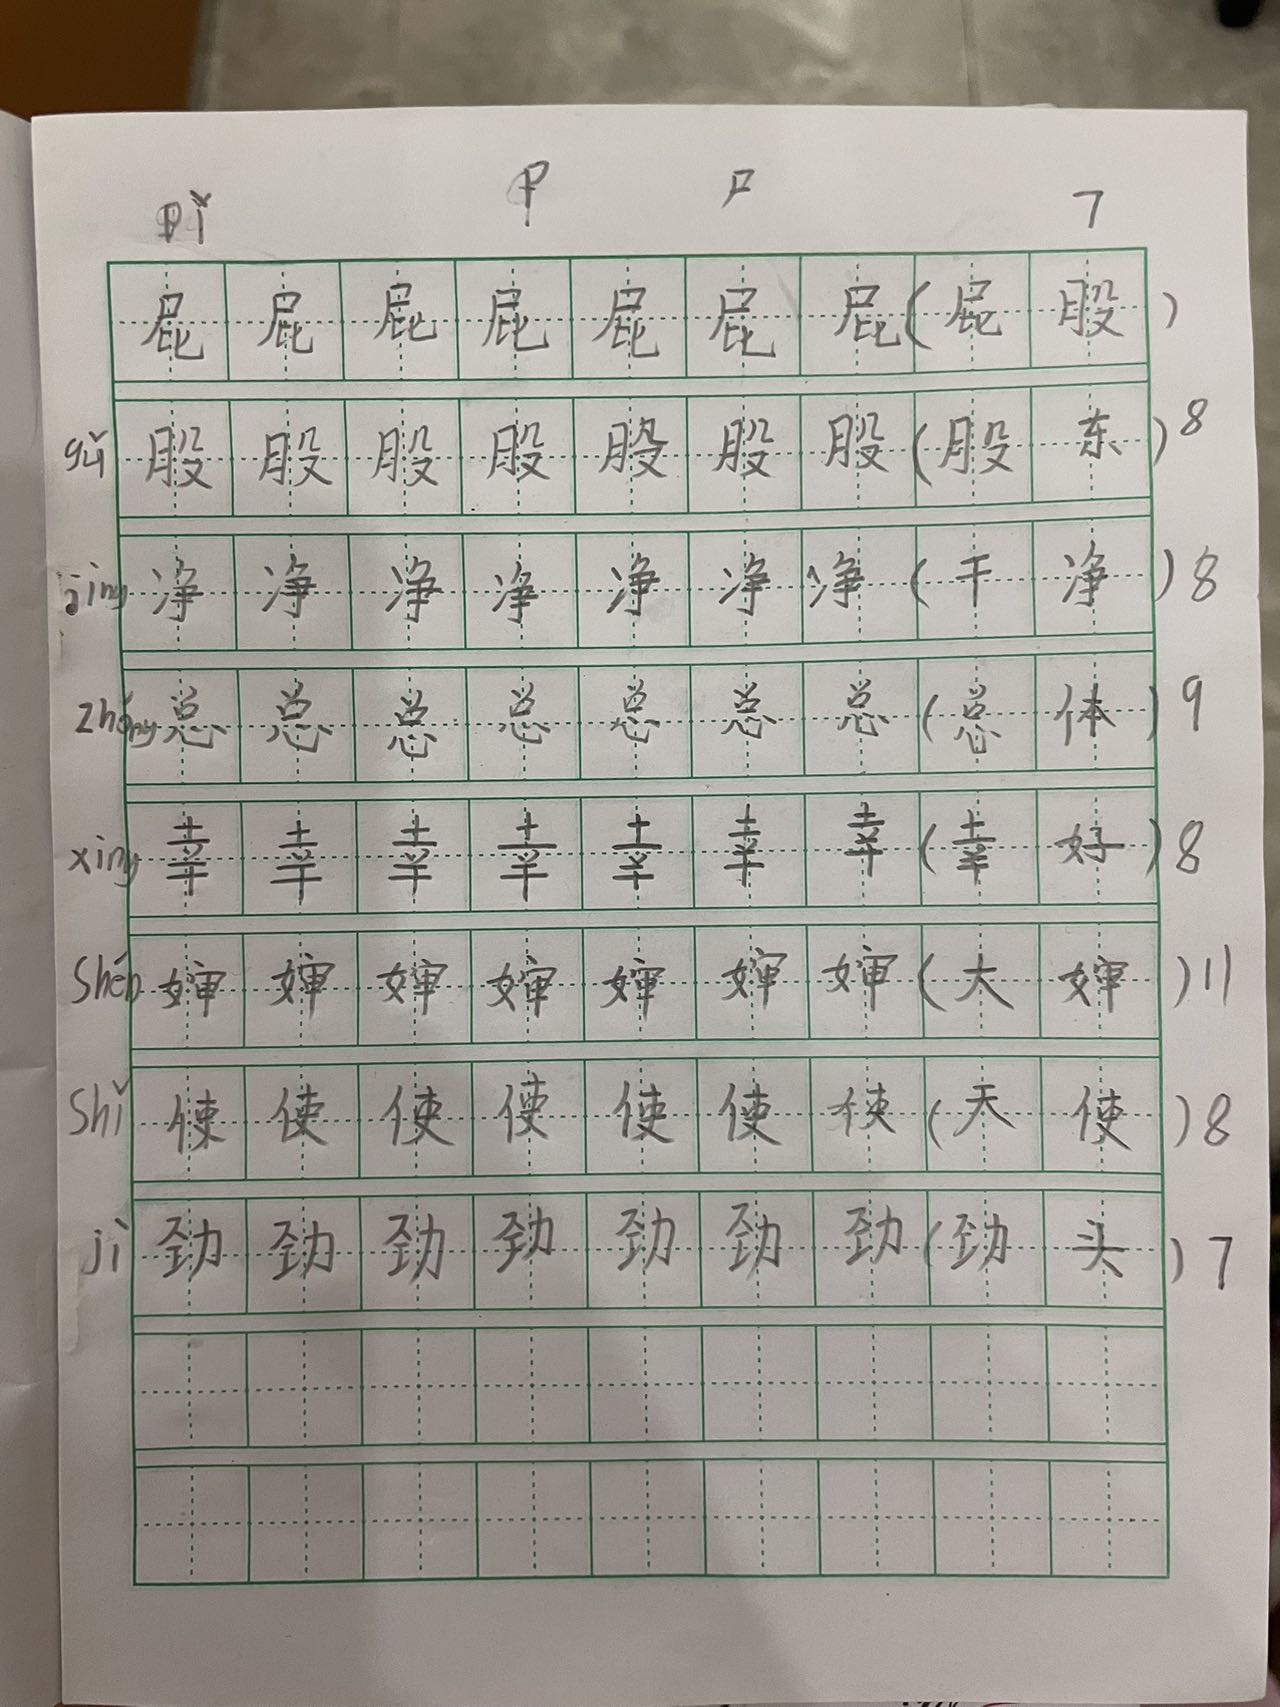 pǐ P 尸 7
屁 屁 屁 屁 屁 屁 屁 ( 屁 股 )
gǔ 股 股 股 股 股 股 股 ( 股 东 ) 8
jìng 净 净 净 净 净 净 净 ( 干 净 ) 8
zhǒng 总 总 总 总 总 总 总 ( 总 体 ) 9
xìng 幸 幸 幸 幸 幸 幸 幸 ( 幸 好 ) 8
Shěn 婶 婶 婶 婶 婶 婶 婶 ( 大 婶 ) 11
Shǐ 使 使 使 使 使 使 使 ( 天 使 ) 8
jì 劲 劲 劲 劲 劲 劲 劲 ( 劲 头 ) 7